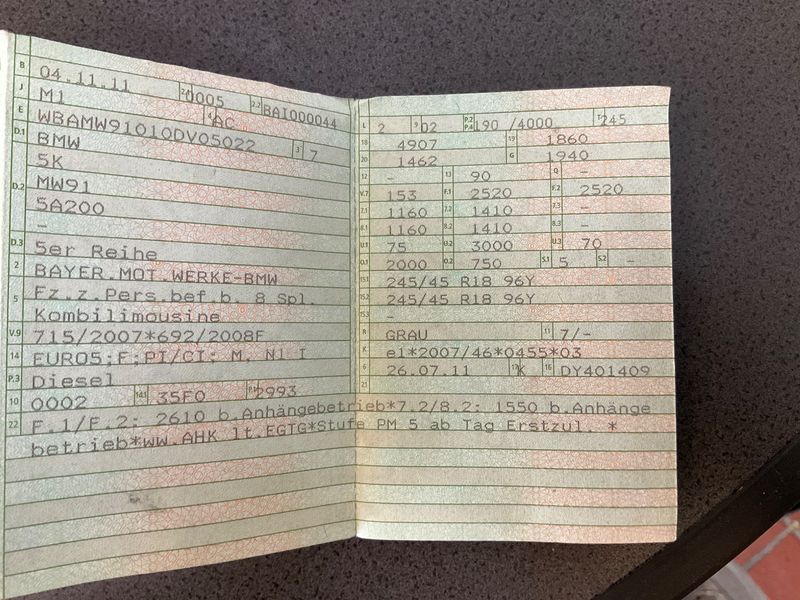 B 04.11.11 2.1 0005 2.2 BAI000044
J M1 4 AC
E WBAMW91010DV05022 3 7
D.1 BMW
5K
D.2 MW91
5A200
-
D.3 5er Reihe
2 BAYER.MOT.WERKE-BMW
5 Fz.z.Pers.bef.b. 8 Spl.
Kombilimousine
V.9 715/2007*692/2008F
14 EURO5;F;PI/CI; M, N1 I
P.3 Diesel
10 0002 14.1 35F0 P.1 2993
22 F.1/F.2: 2610 b.Anhängebetrieb*7.2/8.2: 1550 b.Anhänge
betrieb*WW.AHK lt.EGTG*Stufe PM 5 ab Tag Erstzul. *
L 2 9 02 P.2 P.4 190 /4000 T 245
18 4907 19 1860
20 1462 G 1940
12 - 13 90 Q -
V.7 153 F.1 2520 F.2 2520
7.1 1160 7.2 1410 7.3 -
8.1 1160 8.2 1410 8.3 -
U.1 75 U.2 3000 U.3 70
O.1 2000 O.2 750 S.1 5 S.2 -
15.1 245/45 R18 96Y
15.2 245/45 R18 96Y
15.3 -
R GRAU 11 7/-
K e1*2007/46*0455*03
6 26.07.11 17 K 16 DY401409
21